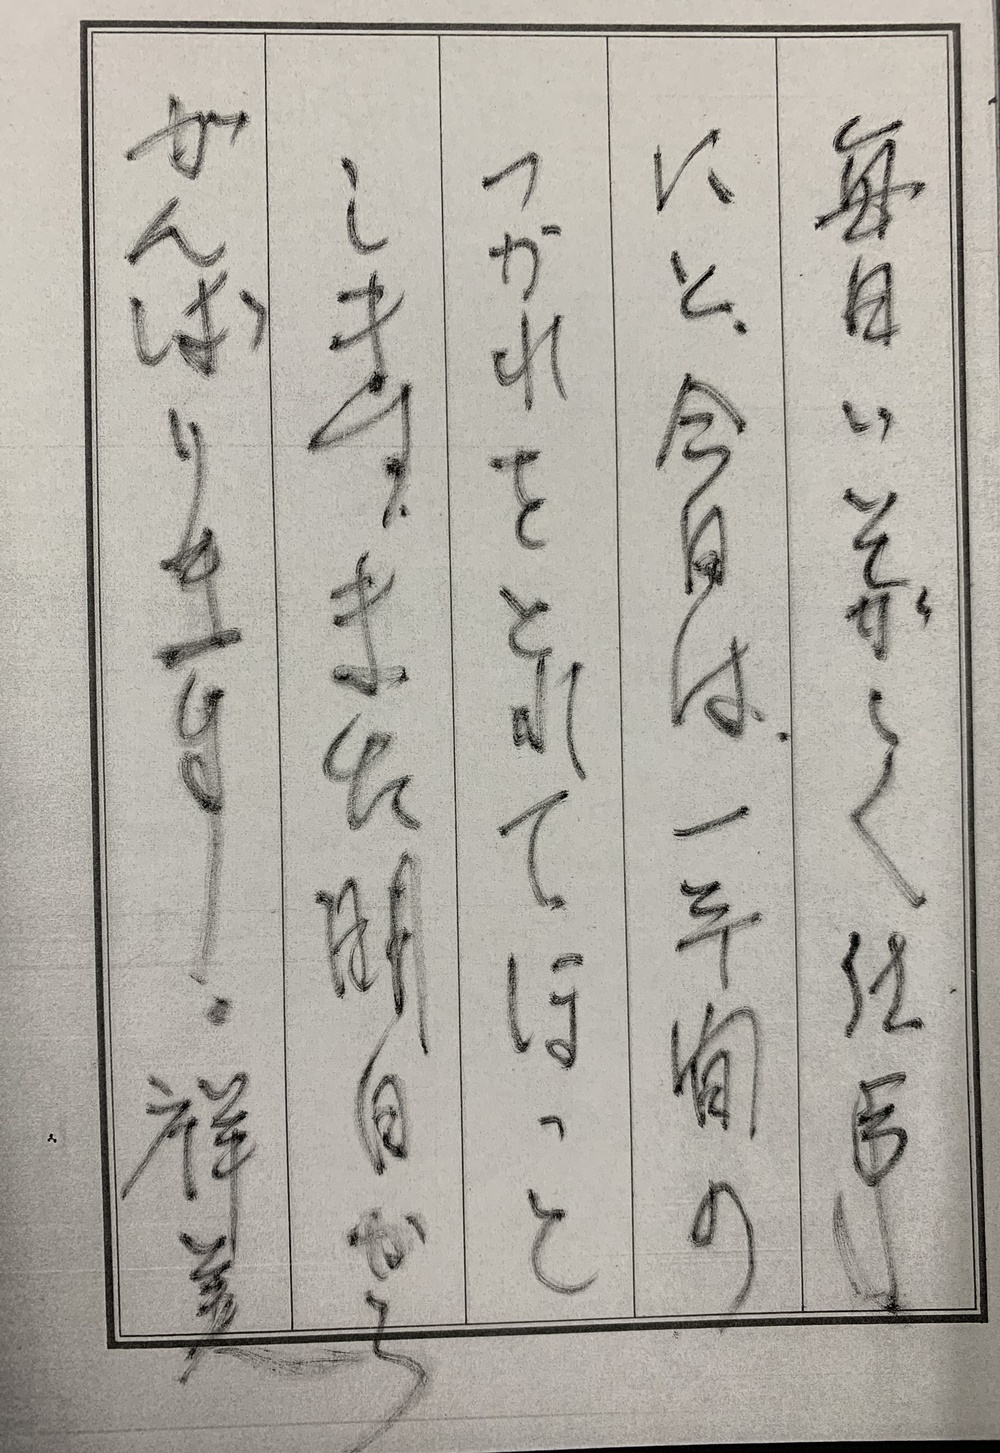 毎日いそがしく仕
にと、今日は、一年間の
つかれをとれてほっと
します。また明日から
がんばります！祥美